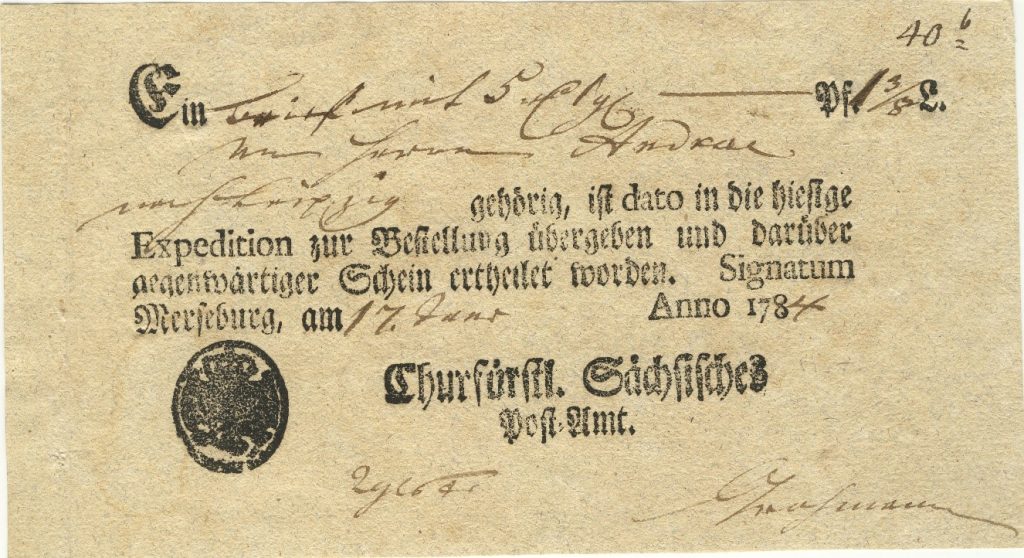 40 6
Ein Brief mit 5 Pf. 1 3/8 L.
An Herrn Andrae
nach Leipzig gehörig, ist dato in die hiesige
Expedition zur Bestellung übergeben und darüber
gegenwärtiger Schein ertheilet worden. Signatum
Merseburg, am 17. Anno 1784
Churfürstl. Sächsisches
Post-Amt.